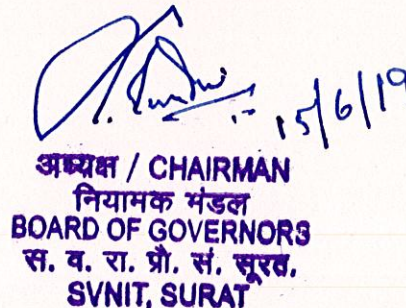 15/6/19
अध्यक्ष / CHAIRMAN
नियामक मंडल
BOARD OF GOVERNORS
स. व. रा. प्रौ. सं. सूरत.
SVNIT, SURAT